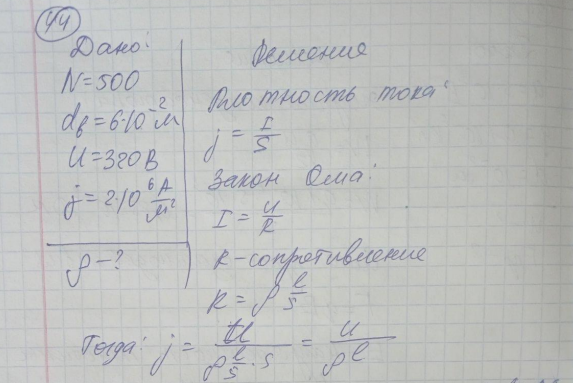 44
Дано:
N=500
dв=6·10⁻²м
U=320В
j=2·10⁶ А/м²
ρ-?
Решение
Плотность тока:
j = I/S
Закон Ома:
I = U/R
R-сопротивление
R = ρ l/S
Тогда: j = U/(ρ l/S · S) = U/(ρ l)